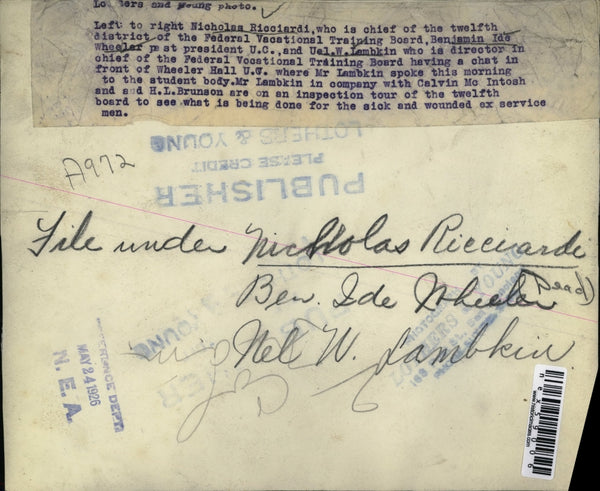 Lothers and young photo.
Left to right Nicholas Ricciardi,who is chief of the twelfth
district of the Federal Vacational Training Board,Benjamin Ide
Wheeler past president U.C.,and Uel.W.Lambkin who is director in
chief of the Federal Vocational Training Board having a chat in
front of Wheeler Hall U.C. where Mr Lambkin spoke this morning
to the student body.Mr Lambkin in company with Calvin Mc Intosh
and and H.L.Brunson are on an inspection tour of the twelfth
board to see what is being done for the sick and wounded ex service
men.
A972
LOTHERS & YOUNG
PLEASE CREDIT
PUBLISHER
File under Nicholas Ricciardi
Ben. Ide Wheeler (Dead)
Nel W. Lambkin
REFERENCE DEPT
MAY 24 1926
N. E. A.